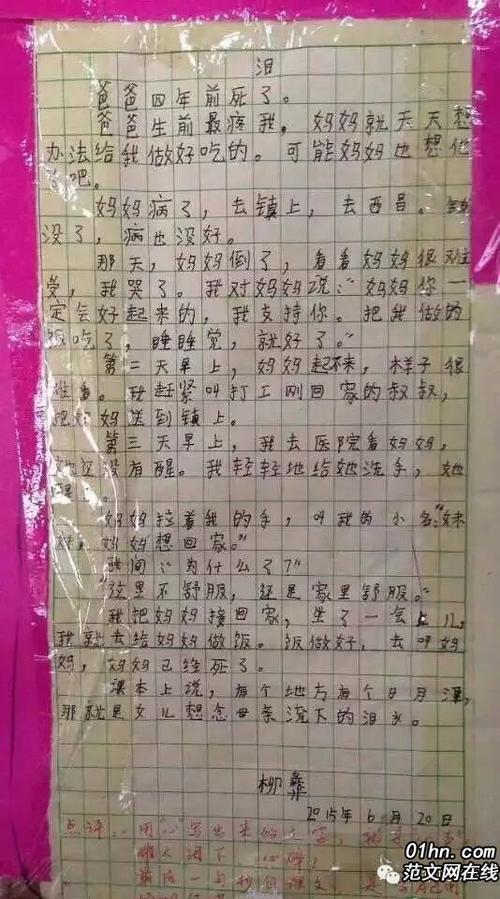 泪
爸爸四年前死了。
爸爸生前最疼我，妈妈就天天想
办法给我做好吃的。可能妈妈也想他
吧。
妈妈病了，去镇上，去西昌。钱
没了，病也没好。
那天，妈妈倒了，看看妈妈很难
受，我哭了。我对妈妈说：“妈妈你一
定会好起来的，我支持你。把我做的
饭吃了，睡睡觉，就好了。”
第二天早上，妈妈起不来，样子很
难看。我赶紧叫打工刚回家的叔叔，
把妈妈送到镇上。
第三天早上，我去医院看妈妈，
她还没有醒。我轻轻地给她洗手，她
醒了。
妈妈拉着我的手，叫我的小名：“妹
妹，妈妈想回家。”
我问：“为什么了？”
“这里不舒服，还是家里舒服。”
我把妈妈接回家，坐了一会儿，
我就去给妈妈做饭。饭做好，去叫妈
妈，妈妈已经死了。
课本上说，有个地方有个日月潭，
那就是女儿想念母亲流下的泪水。
柳彝
2015年6月20日
点评：用“心”写出来的文字，
催人泪下 心碎；
最后一句
01hn.com
范文网在线